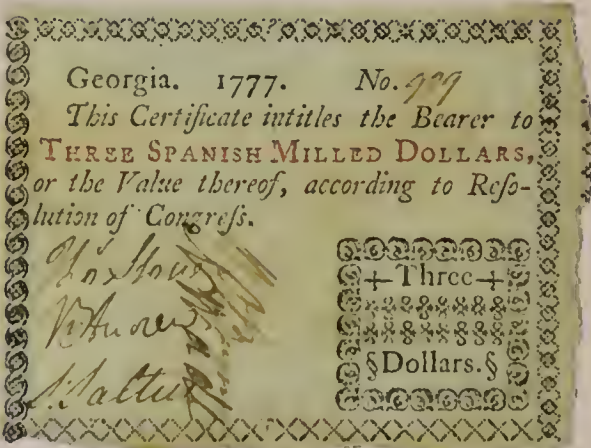 Georgia. 1777. No.
This Certificate intitles the Bearer to
THREE SPANISH MILLED DOLLARS,
or the Value thereof, according to Reſo-
lution of Congreſs.
Three
§Dollars.§